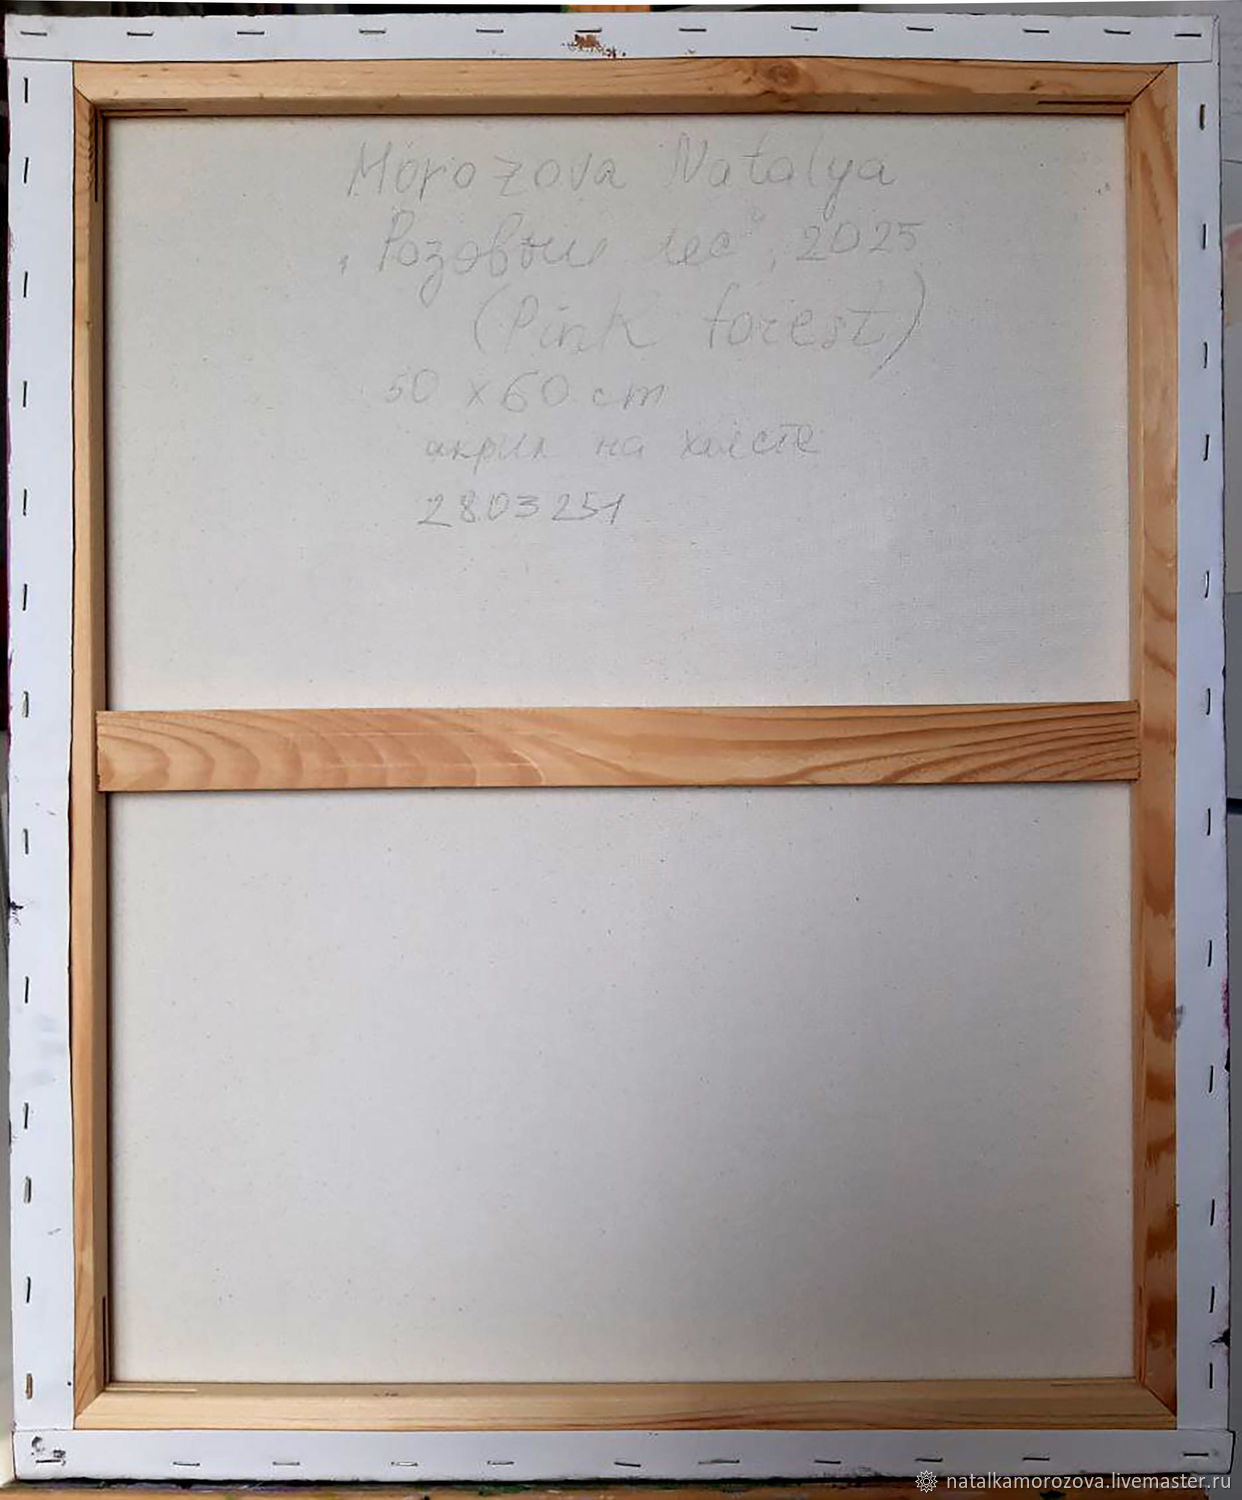 Morozova Natalya
„Розовый лес", 2025
(Pink forest)
50 x 60 cm
акрил на холсте
2803251
natalkamorozova.livemaster.ru